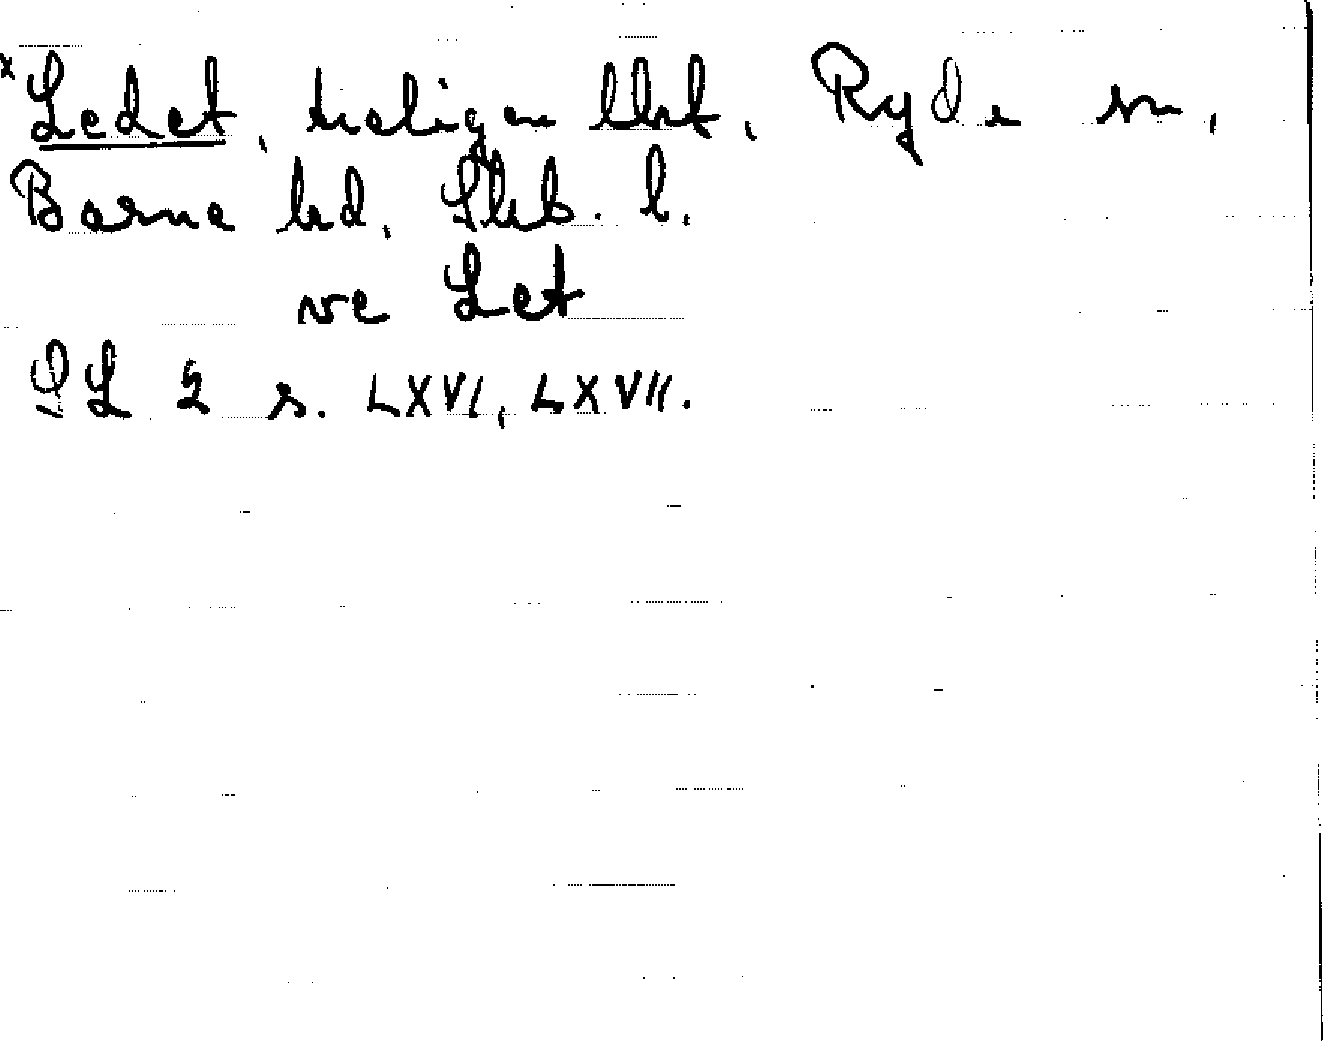 × Ledet, troligen Ust, Ryda sn,
Barne hd, Skb. l.
se Let
SL 2 s. LXVI, LXVII.